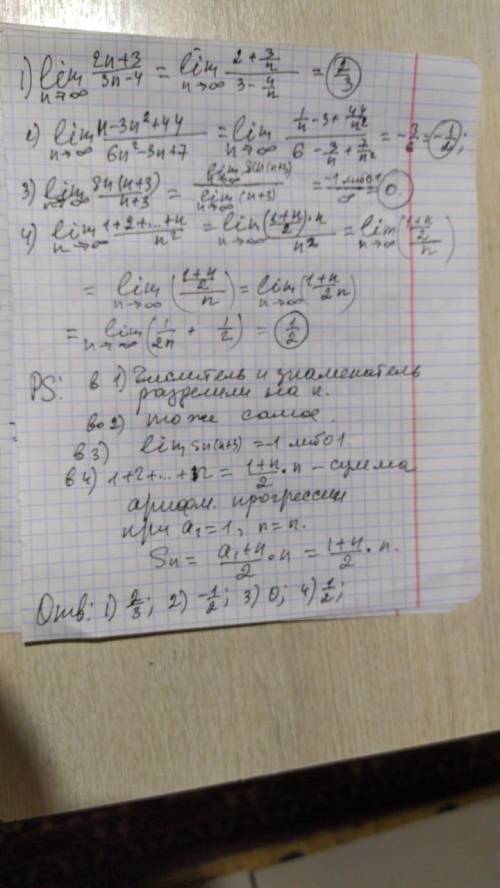 1) lim n→∞ (2n+3)/(3n-4) = lim n→∞ (2+3/n)/(3-4/n) = 2/3
2) lim n→∞ (n-3n²+44)/(6n²-3n+7) = lim n→∞ (1/n-3+44/n²)/(6-3/n+7/n²) = -3/6 = -1/2;
3) lim n→∞ Sn(n+3)/(n+3) = lim n→∞ Sn(n+3)/lim n→∞ (n+3) = -1 либо 1/∞ = 0.
4) lim n→∞ (1+2+...+n)/n² = lim n→∞ ((1+n)/2)·n/n² = lim n→∞ (((1+n)/2)/n)
= lim n→∞ (((1+n)/2)/n) = lim n→∞ ((1+n)/2n)
= lim n→∞ (1/2n + 1/2) = 1/2
PS: в 1) Числитель и знаменатель
разделили на n.
во 2) тоже самое.
в 3) lim Sn(n+3) = -1 либо 1.
в 4) 1+2+...+n = (1+n)/2 · n - сумма
арифм. прогрессии
при a₁=1, n=n.
Sn = (a₁+n)/2 · n = (1+n)/2 · n.
Отв: 1) 2/3; 2) -1/2; 3) 0; 4) 1/2;